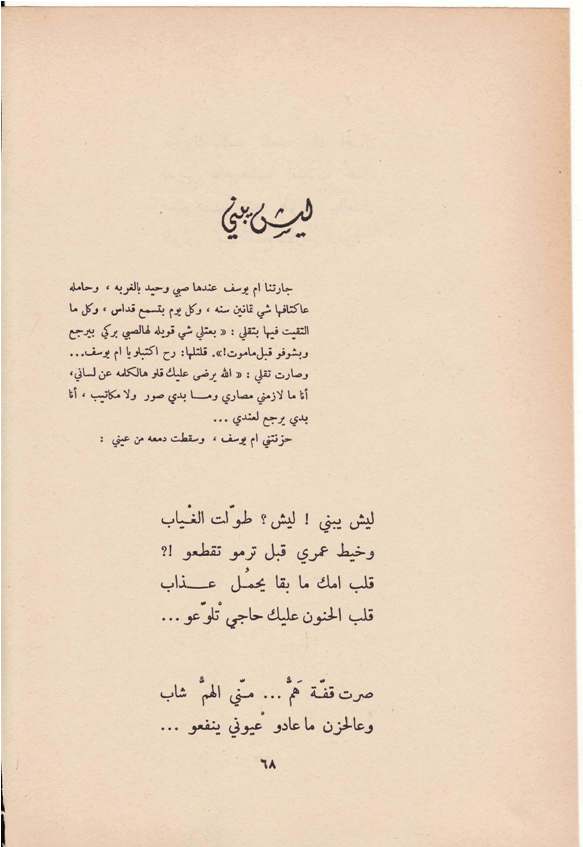 ليش يبني
جارتنا ام يوسف عندها صبي وحيد بالغربه ، وحامله
عاكتافها شي تمانين سنه ، وكل يوم بتسمع قداس ، وكل ما
التقيت فيها بتقلي : « بعتلي شي قوبله لهالصبي بركي بيرجع
وبشوفو قبل ماموت !» . قلتلها: رح اكتبلو يا ام يوسف...
وصارت تقلي : « الله يرضى عليك قلو هالكلمه عن لساني،
أنا ما لازمني مصاري ومـــا بدي صور ولا مكاتيب ، أنا
بدي يرجع لعندي ...
حزنتني ام يوسف ، وسقطت دمعه من عيني :
ليش يبني ! ليش ؟ طوّلت الغْياب
وخيط عمري قبل ترمو تقطعو !؟
قلب امك ما بقا يحمُـل عـــذاب
قلب الحنون عليك حاجي تْلوّعو ...
صرت قفّـة هَمُّ ... مـنّي الهمُّ شاب
وعالحزن ما عادو عْيوني ينفعو ...
٦٨